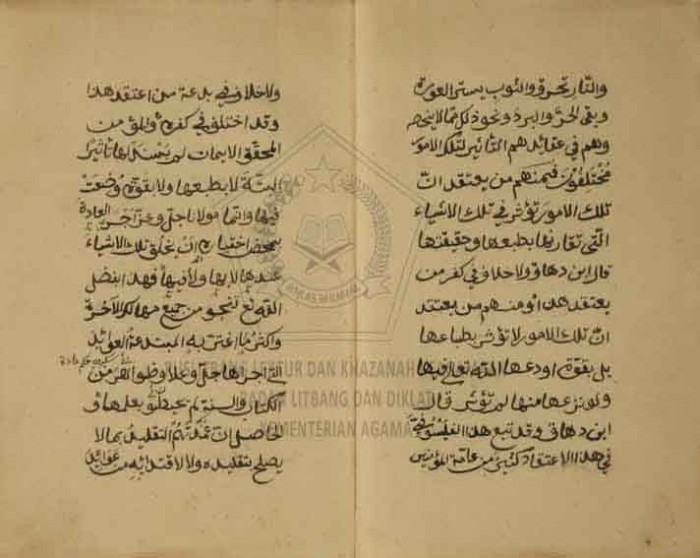 والنار تحرق والثوب يستر العورة
ويقى الحر والبرد ونحو ذلك مما لا ينحصر
وهم فى عقائدهم التأثير لتلك الامور
مختلفون فمنهم من يعتقد ان
تلك الامور تؤثر فى تلك الاشياء
التى تقارنها بطبعها وحقيقتها
قال ابن دهاق ولا خلاف فى كفر من
يعتقد هذا ومنهم من يعتقد
ان تلك الامور لا تؤثر بطباعها
بل بقوة اودعها الله تعالى فيها
ولو نزعها منها لم تؤثر قال
ابن دهاق وقد تبع هذا الفيلسوفى
فى هذا الاعتقاد كثير من عامة المؤمنين
ولا خلاف فى بدعة من اعتقد هذا
وقد اختلف فى كفره والمؤمن
المحقق الايمان لم يسند لها تأثيرا
البتة لا بطبعها ولا بقوة وضعت
فيها وانما مولانا جل وعز اجرى العادة
بمحض اختياره ان يخلق تلك الاشياء
عندها لا بها ولا فيها فهذا بفضل
الله تعالى ينجو من جميع مهالك الآخرة
واكثر ما اغتر به المبتدعة العوائد
التى اجراها جل وعلا وظواهر من
الكتاب والسنة لم يحيطوا بعلمها و
الحاصل ان عمدتهم التقليد بما لا
يصلح تقليده ولا الاقتداء به من عوائد
PUSLITBANG LEKTUR DAN KHAZANAH
BADAN LITBANG DAN DIKLAT
KEMENTERIAN AGAMA